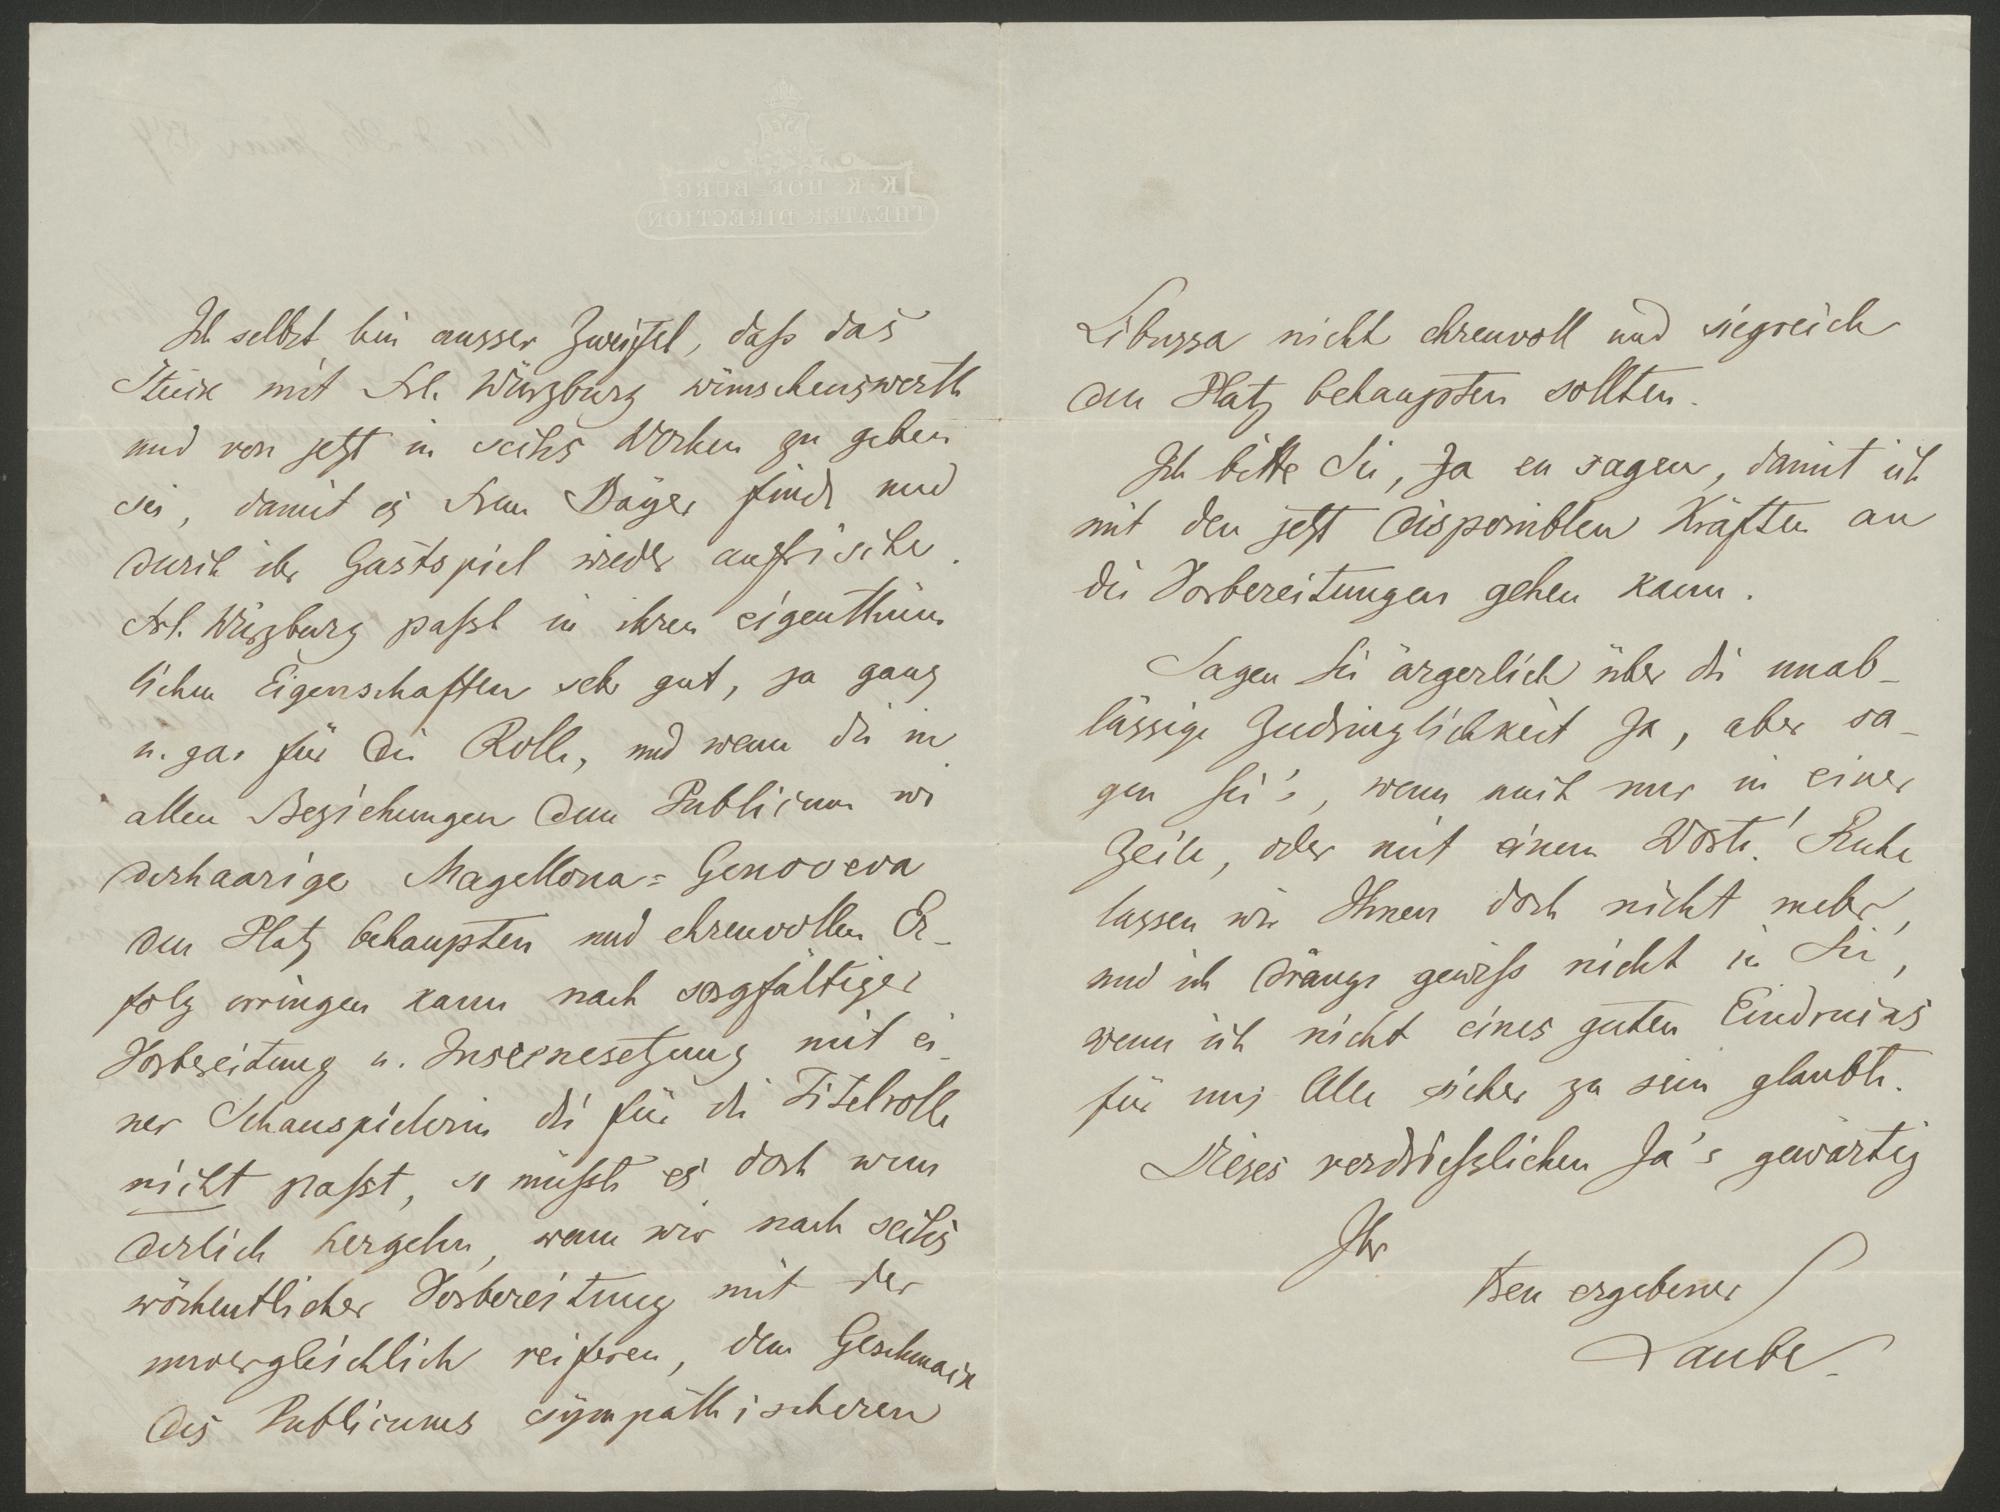 Ich selbst bin ausser Zweifel, daß das
Stück mit Frl. Würzburg wünschenswerth
und von jetzt in sechs Wochen zu geben
sei, damit es Frau Bayer finde und
durch ihr Gastspiel wieder auffrische.
Frl. Würzburg paßt in ihren eigenthüm
lichen Eigenschaften sehr gut, ja ganz
u. gar für die Rolle, und wenn die in
allen Beziehungen dem Publicum wi
derhaarige Magellona-Genoveva
den Platz behaupten und ehrenvollen Er-
folg erringen kann nach sorgfältiger
Vorbereitung u. Inscenesetzung mit ei-
ner Schauspielerin die für die Titelrolle
nicht passt, so müßte es doch wun
derlich hergehn, wenn wir nach sechs
wöchentlicher Vorbereitung mit der
unvergleichlich reiferen, dem Geschmack
des Publicums sympathischeren
Libussa nicht ehrenvoll und siegreich
den Platz behaupten sollten.
Ich bitte Sie, Ja zu sagen, damit ich
mit den jetzt disponiblen Kräften an
die Vorbereitungen gehen kann.
Sagen Sie ärgerlich über die unab-
lässige Zudringlichkeit Ja, aber sa-
gen Sie's, wenn auch nur in einer
Zeile, oder mit einem Worte! Ruhe
lassen wir Ihnen doch nicht mehr,
und ich dränge gewiß nicht in Sie,
wenn ich nicht eines guten Eindrucks
für uns Alle sicher zu sein glaubte.
Dieses verdrießlichen Ja's gewärtig
Ihr
ergebener
Laube.
K. K. HOF-BURG
THEATER DIRECTION